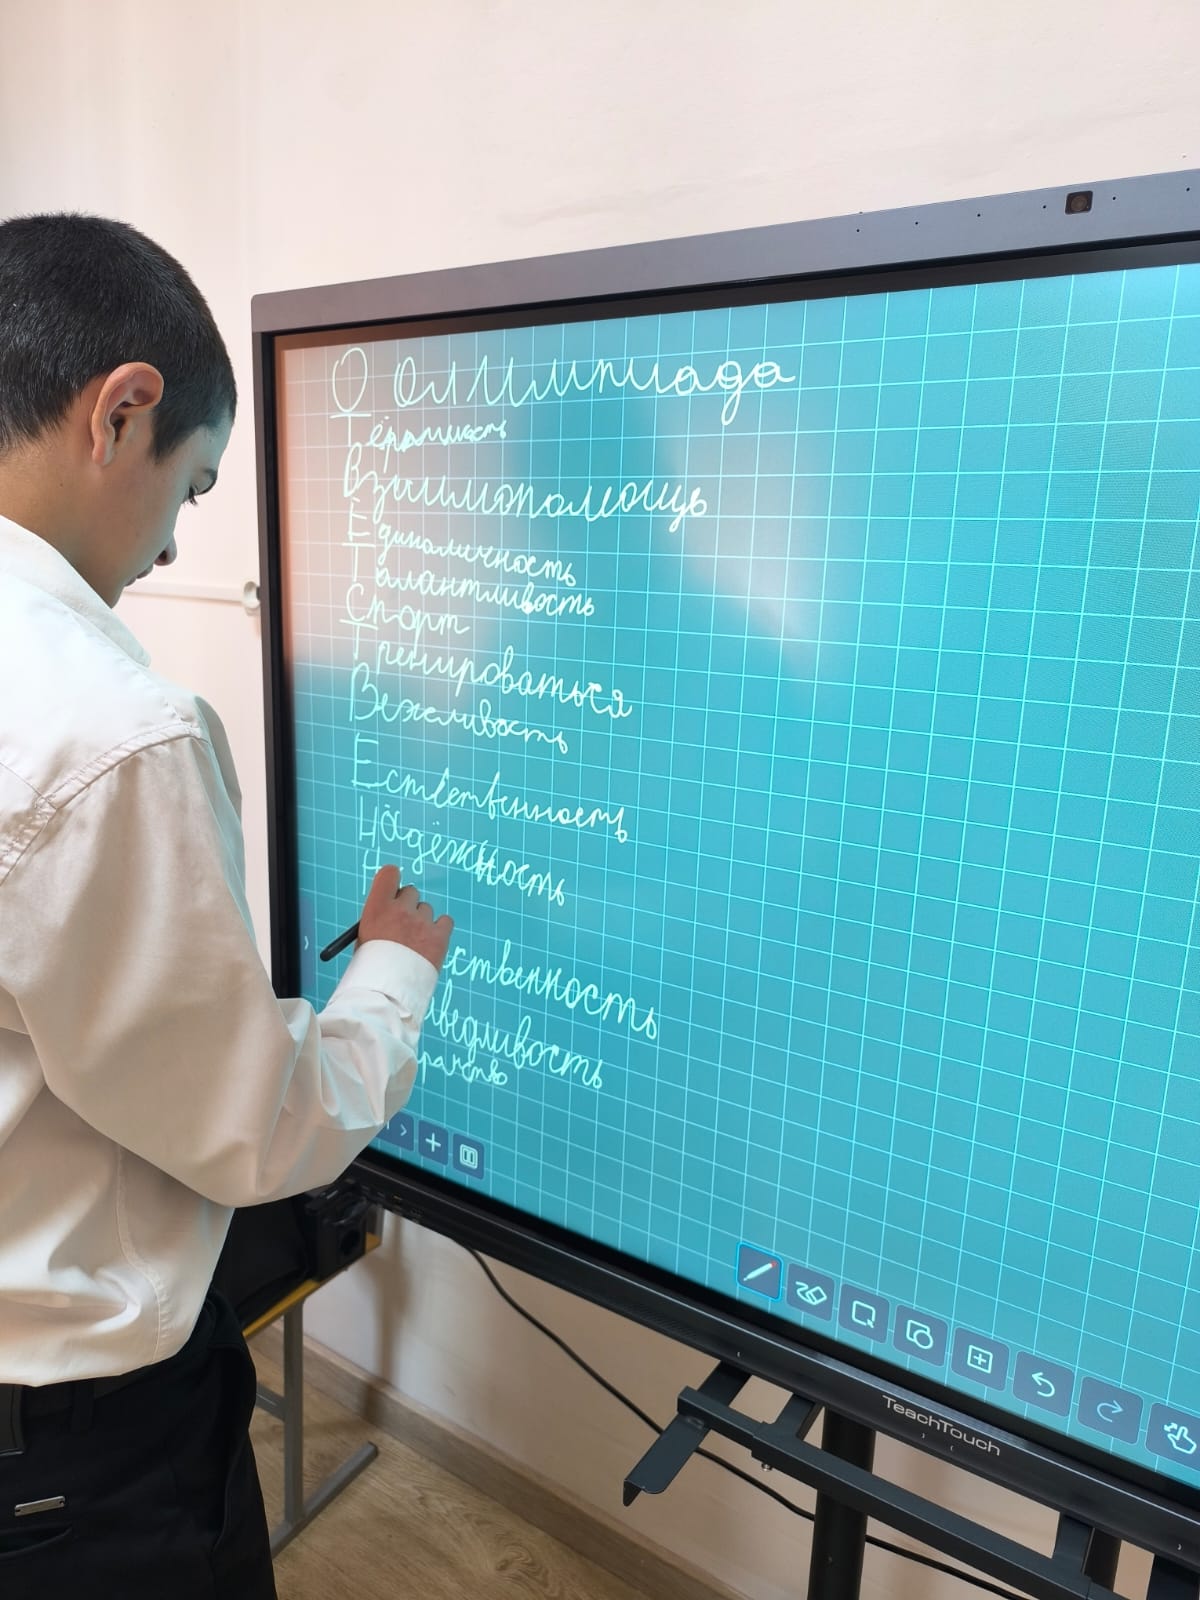 О олимпиада
Терпимость
Взаимопомощь
Единоличность
Талантливость
Спорт
Тренироваться
Вежливость
Естественность
Надёжность
Н
ственность
аведливость
TeachTouch